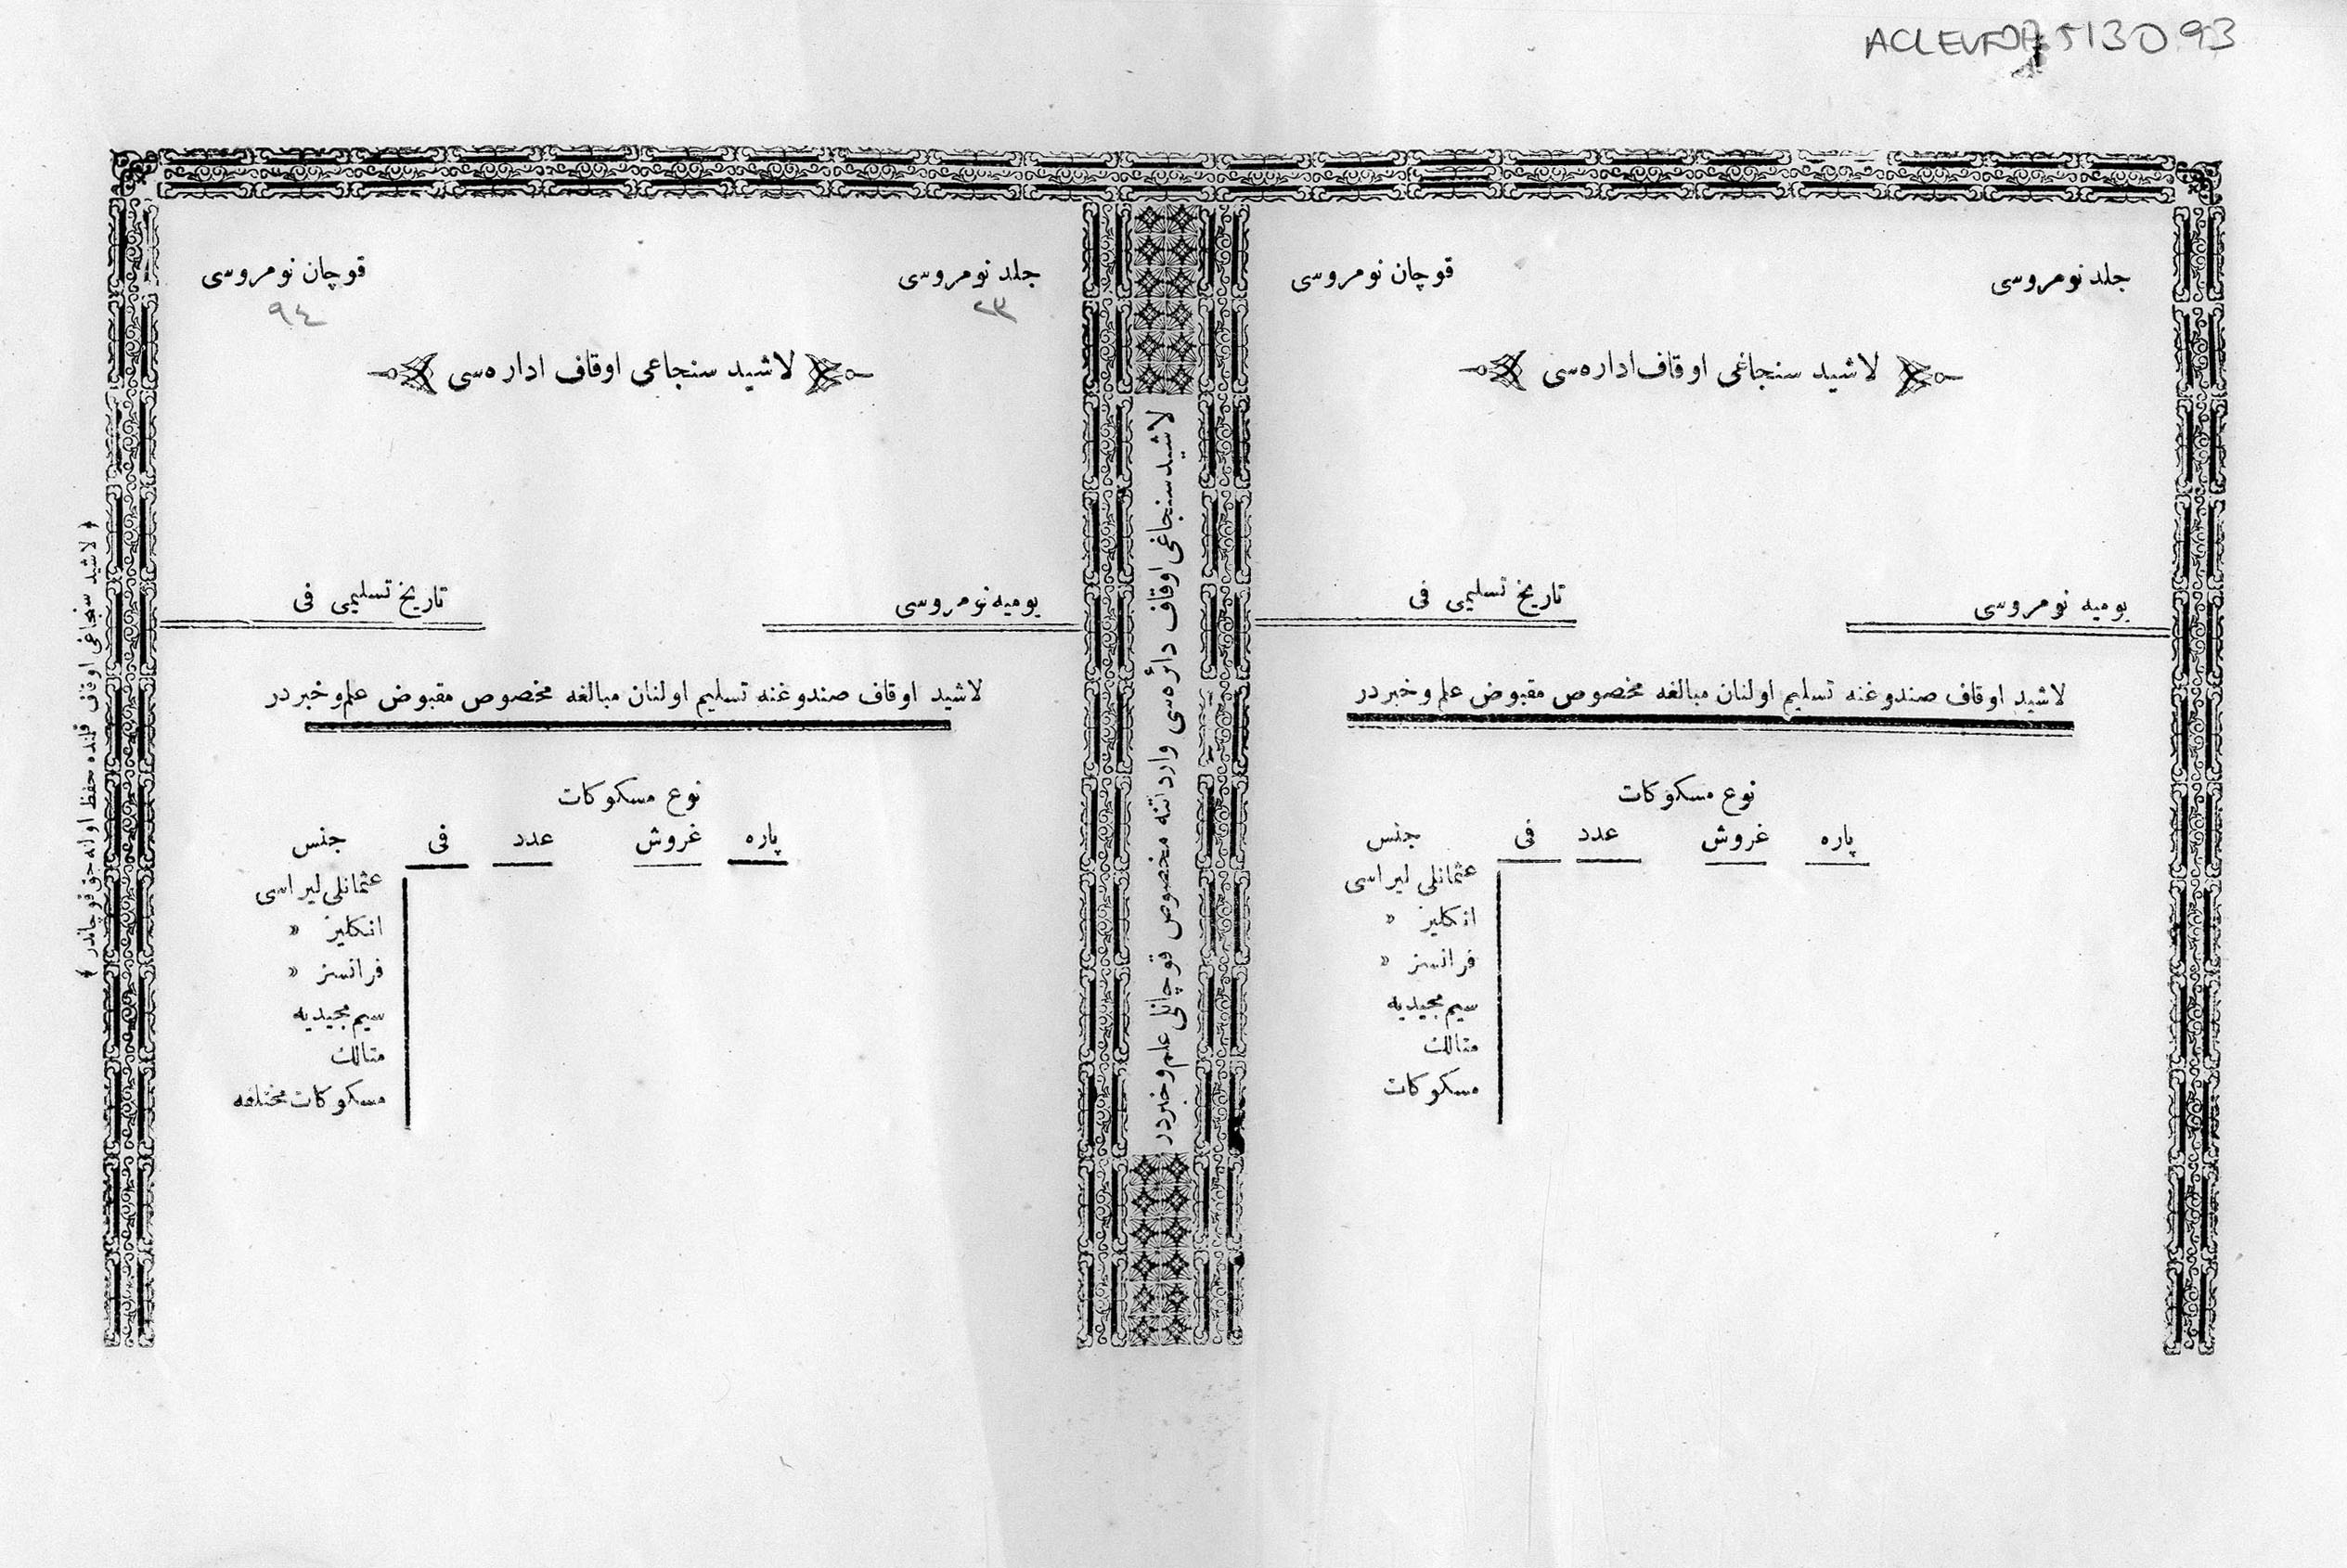 ACLEVFDA 513093
جلد نومروسی
قوچان نومروسی
لاشید سنجاغی اوقاف اداره‌سی
یومیه نومروسی
تاریخ تسلیمی فی
لاشید اوقاف صندوغنه تسلیم اولنان مبالغه مخصوص مقبوض علم وخبردر
نوع مسکوکات
پاره غروش عدد فی جنس
عثمانلی لیراسی
انکلیز »
فرانسز »
سیم مجیدیه
متالك
مسکوکات
لاشید سنجاغی اوقاف دائره‌سی وارداتنه مخصوص قوچانلی علم وخبردر
جلد نومروسی
٢٣
قوچان نومروسی
٩٤
لاشید سنجاعی اوقاف اداره‌سی
یومیه نومروسی
تاریخ تسلیمی فی
لاشید اوقاف صندوغنه تسلیم اولنان مبالغه مخصوص مقبوض علم وخبردر
نوع مسکوکات
پاره غروش عدد فی جنس
عثمانلی لیراسی
انکلیز »
فرانسز »
سیم مجیدیه
متالك
مسکوکات مختلفه
﴿ لاشید سنجاغی اوقاف قلنده حفظ اوله‌جق قوچاندر ﴾